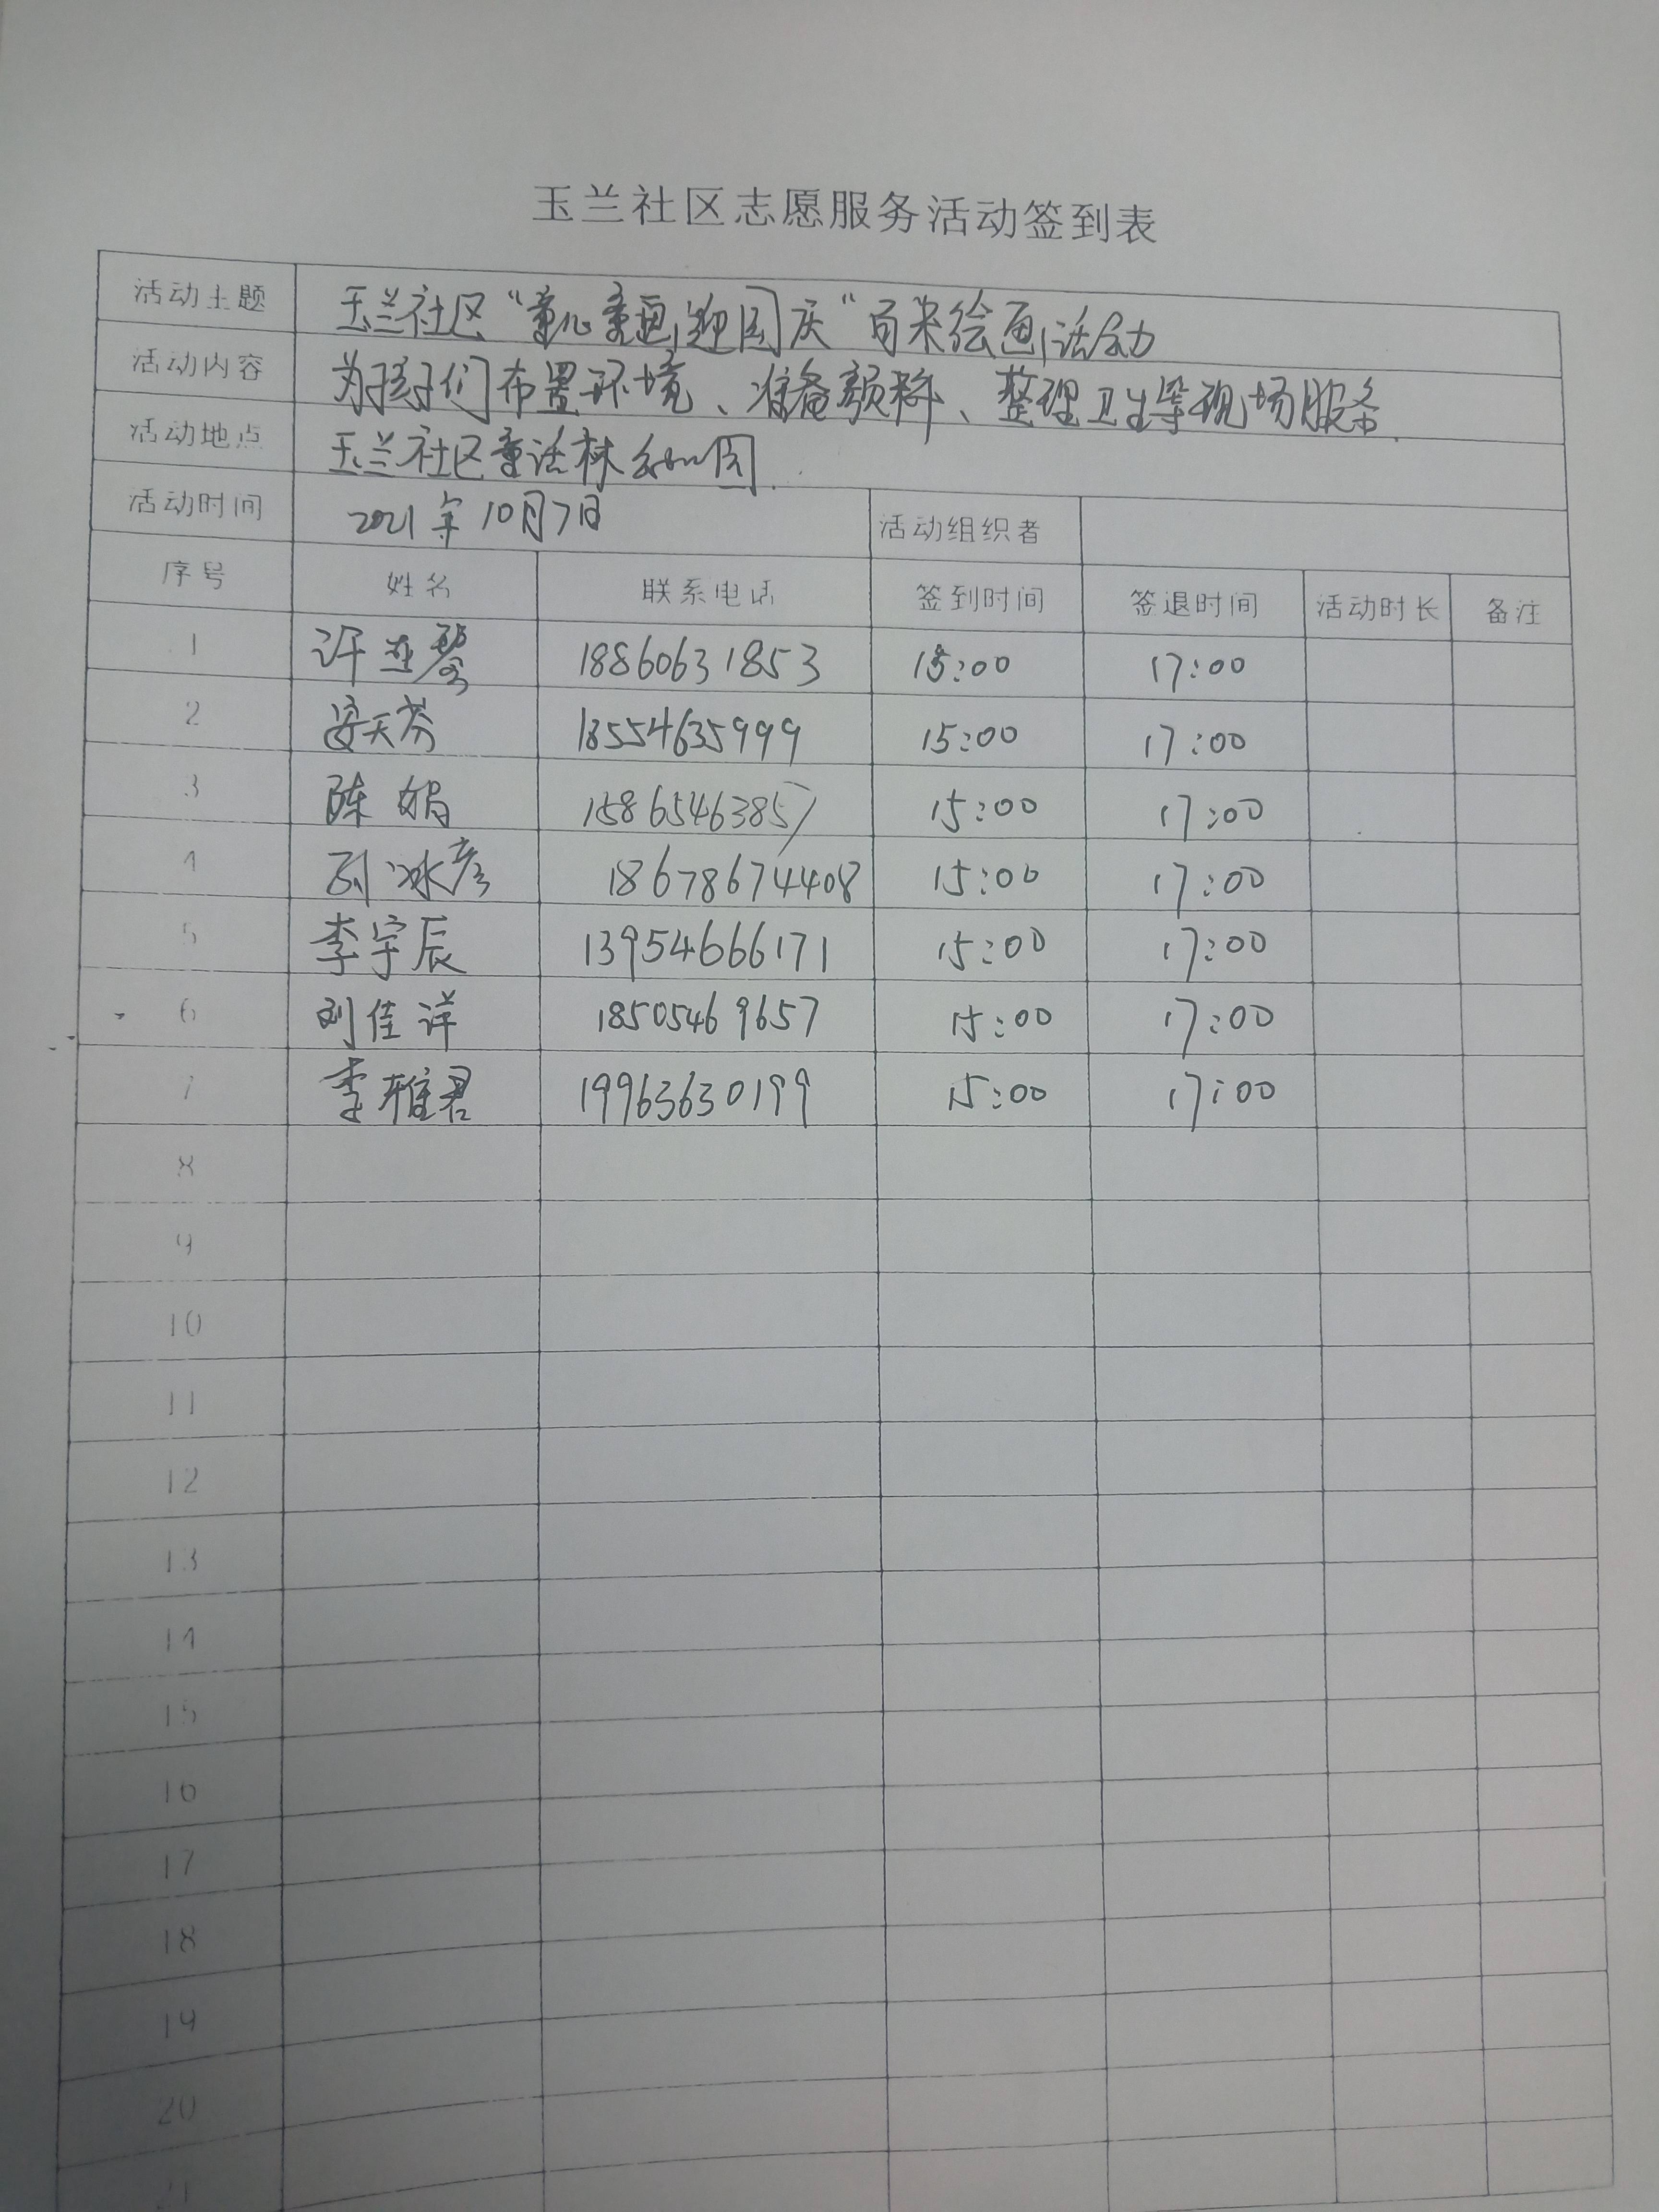 玉兰社区志愿服务活动签到表
活动主题 玉兰社区“童心童画,迎国庆”百米绘画活动
活动内容 为孩子们布置环境、准备颜料、整理卫生等现场服务.
活动地点 玉兰社区童话林公园.
活动时间 2021年10月7日 活动组织者
序号 姓名 联系电话 签到时间 签退时间 活动时长 备注
1 许延琴 18860631853 15:00 17:00
2 安天芬 18554635999 15:00 17:00
3 陈娟 15865463857 15:00 17:00
4 孙冰彦 18678674408 15:00 17:00
5 李宇辰 13954666171 15:00 17:00
6 刘佳祥 18505469657 15:00 17:00
7 李雅君 19963630199 15:00 17:00
8
9
10
11
12
13
14
15
16
17
18
19
20
21